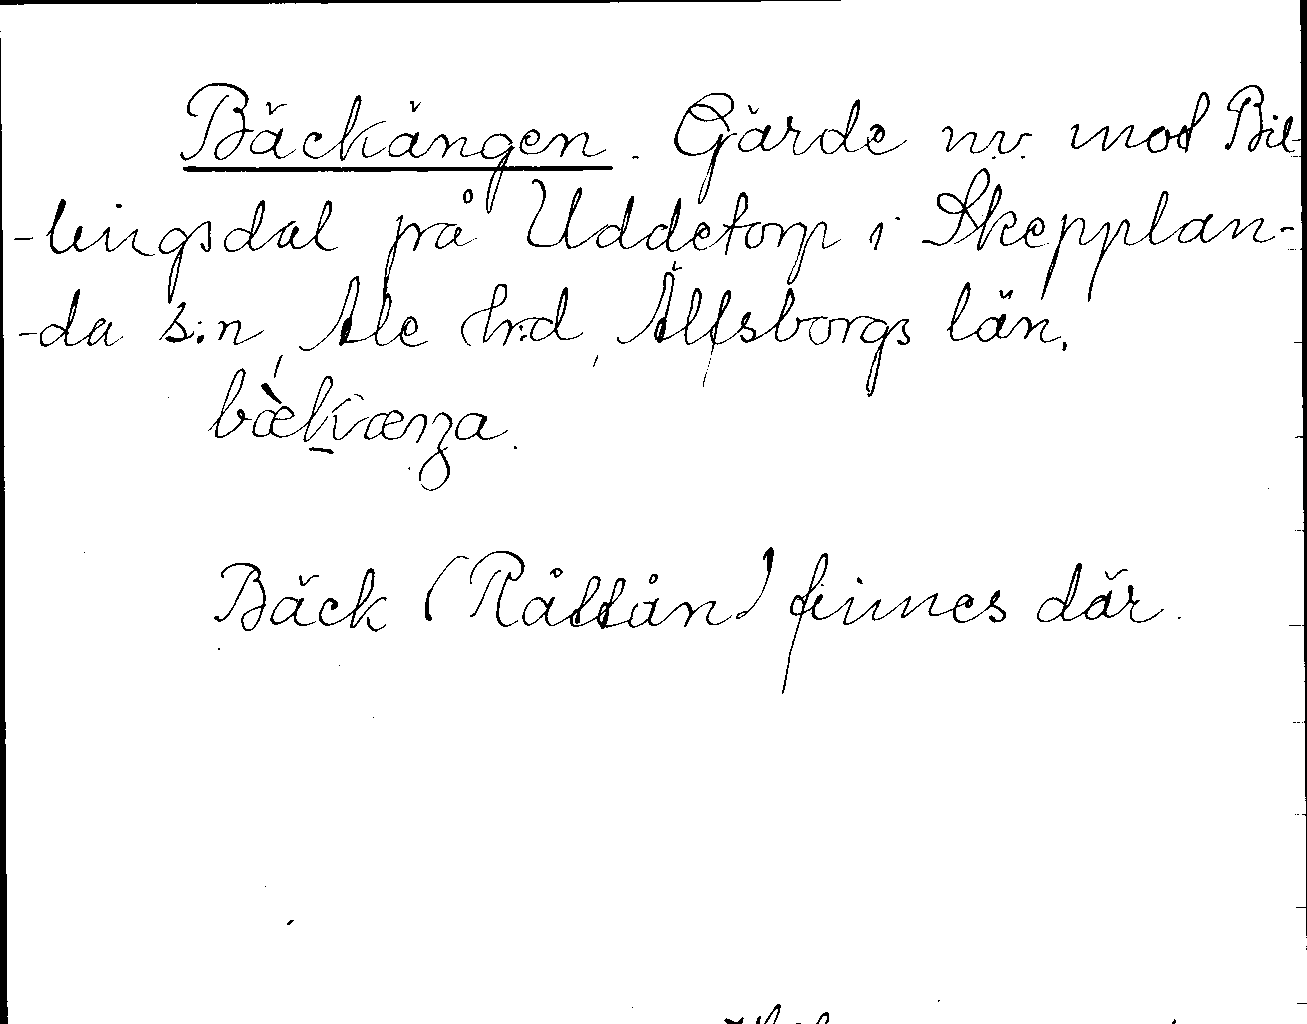 Bäckängen. Gärde n.v. mot Bil-
-lingsdal på Uddetorp i Skepplan-
-da s:n, Ale h:d, Älfsborgs län.
bæ̀k̲æŋa.
Bäck (Råttån) finnes där.